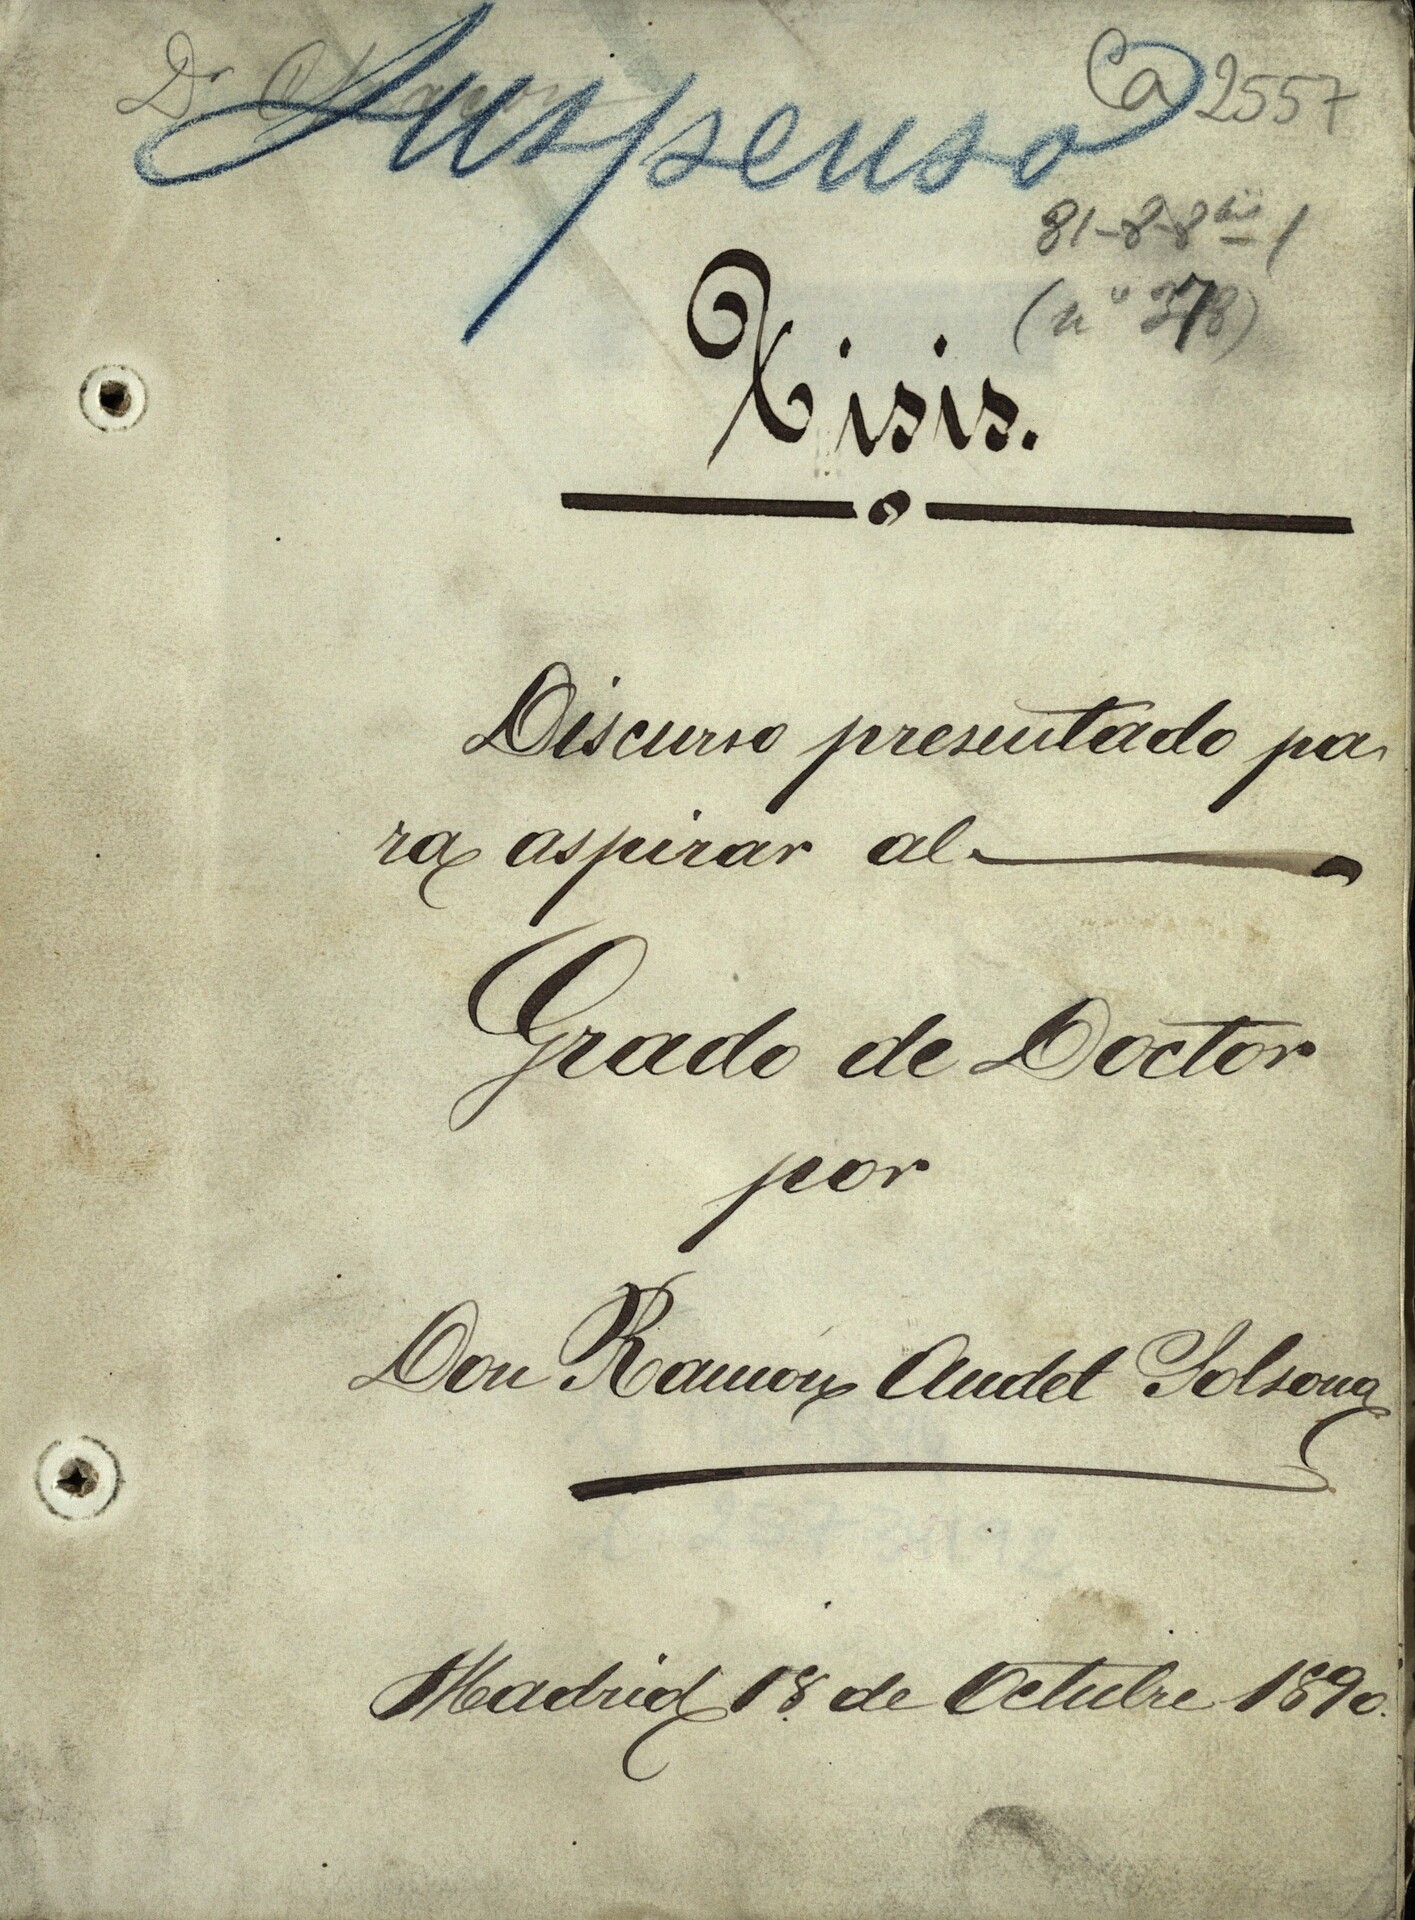 Dr
Suspenso
Ca 2557
81-8-8 bis 1
(nº 378)
Tisis.
Discurso presentado pa-
ra aspirar al
Grado de Doctor
por
Don Ramón Audet Solsona
Madrid 18 de Octubre 1890.